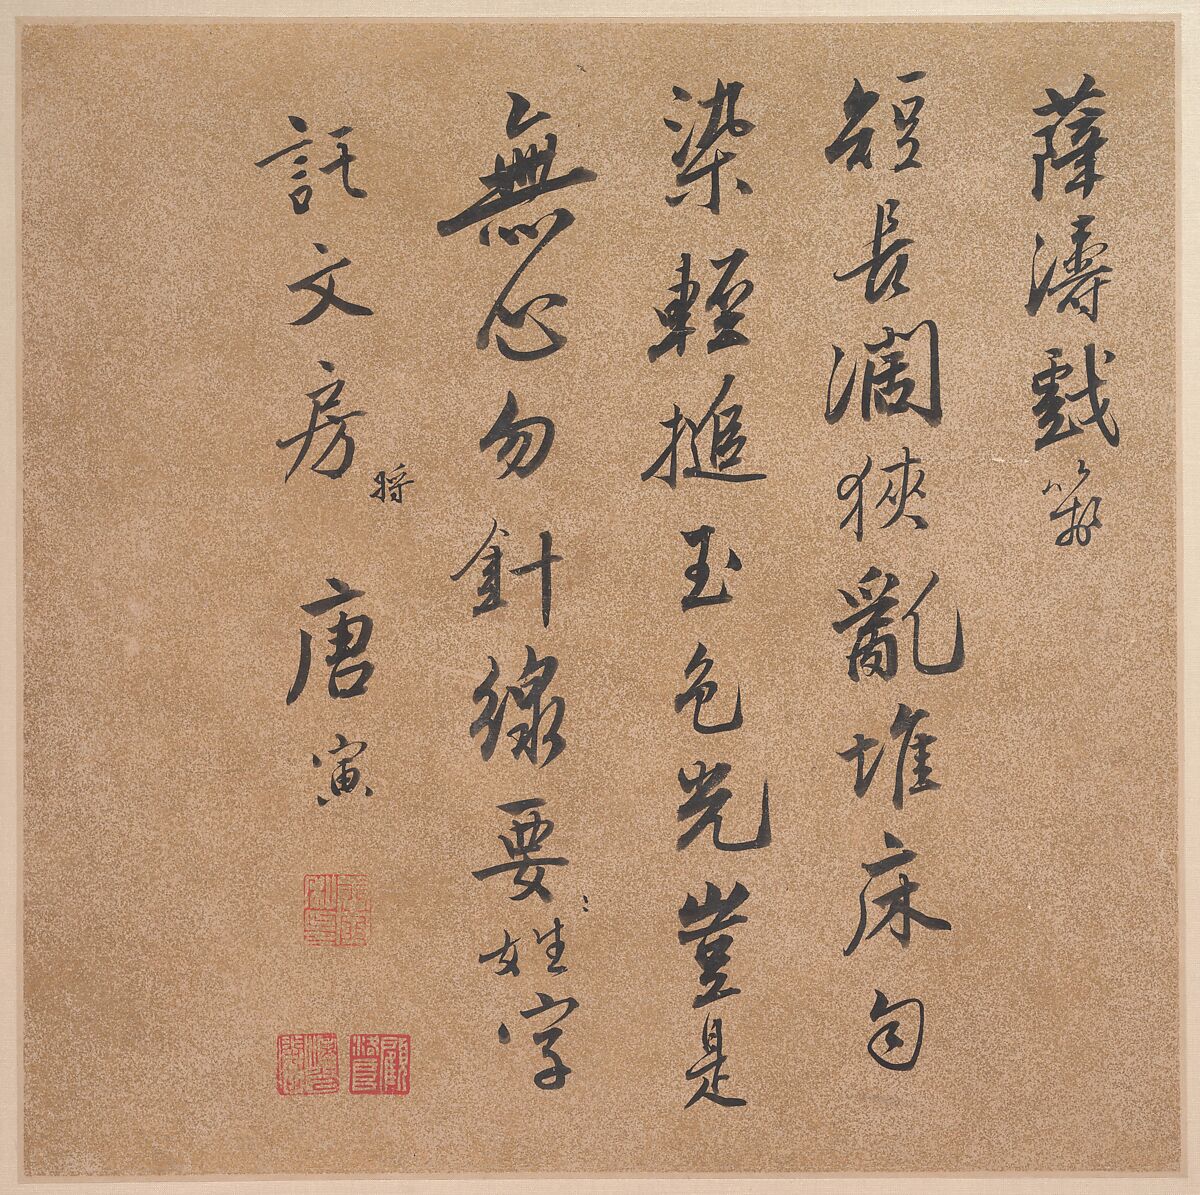 薛濤戲箋
短長濶狹亂堆床匀
染輕搥玉色光豈是
無心勿針線要姓字
託文房
將
唐寅
顧洛阜
漢光閣主